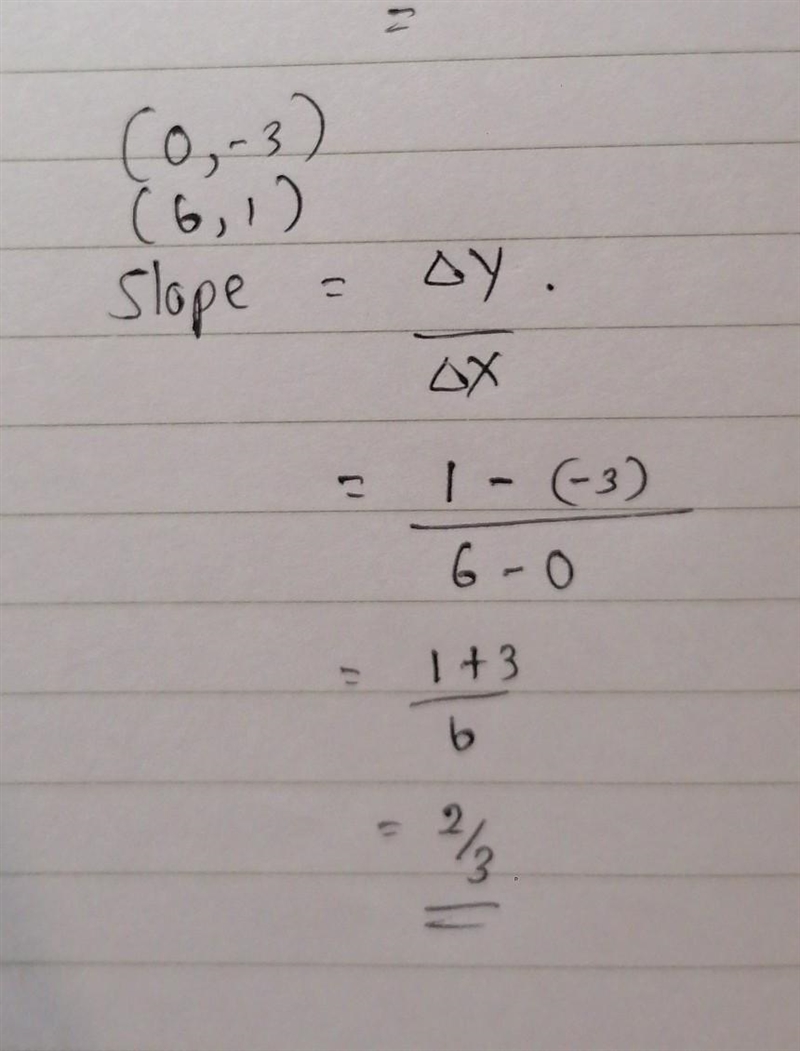 =
(0,-3)
(6,1)
Slope = ΔY .
ΔX
= 1 - (-3)
6 - 0
= 1+3
6
= 2/3